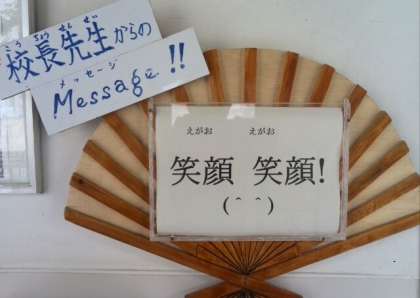 こうちょうせんせい
校長先生からの
メッセージ
Message!!
えがお えがお
笑顔 笑顔!
(＾＾)